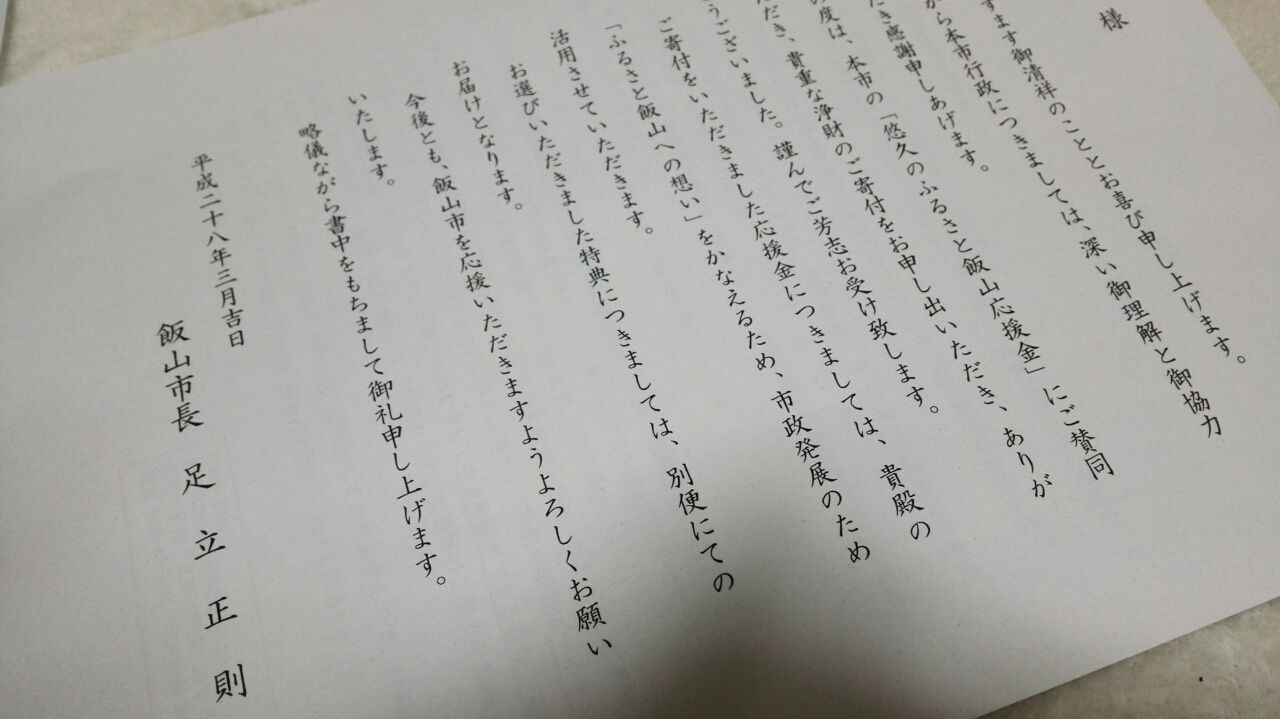 様
すます御清祥のこととお喜び申し上げます。
がら本市行政につきましては、深い御理解と御協力
だき感謝申しあげます。
の度は、本市の「悠久のふるさと飯山応援金」にご賛同
ただき、貴重な浄財のご寄付をお申し出いただき、ありが
うございました。謹んでご芳志お受け致します。
ご寄付をいただきました応援金につきましては、貴殿の
「ふるさと飯山への想い」をかなえるため、市政発展のため
活用させていただきます。
お選びいただきました特典につきましては、別便にての
お届けとなります。
今後とも、飯山市を応援いただきますようよろしくお願い
いたします。
略儀ながら書中をもちまして御礼申し上げます。
平成二十八年三月吉日
飯山市長 足立正則